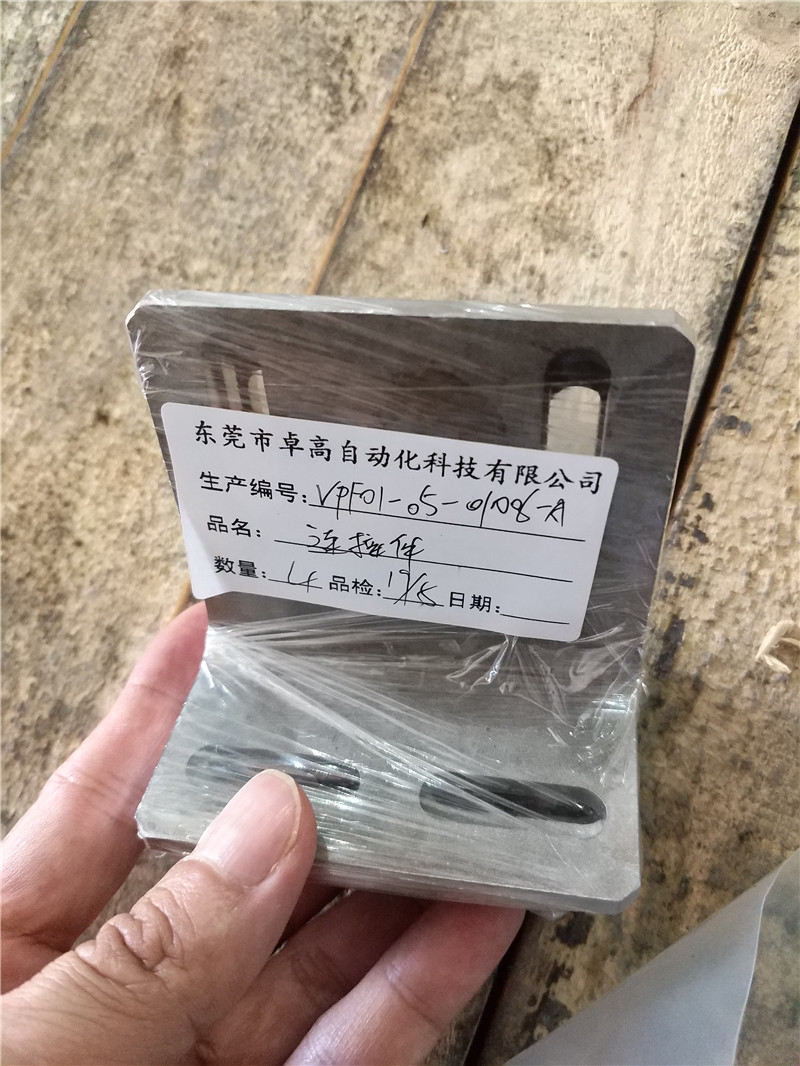 东莞市卓高自动化科技有限公司
生产编号:VPF01-05-0108-A
品名: 连接件
数量: 品检: 日期: